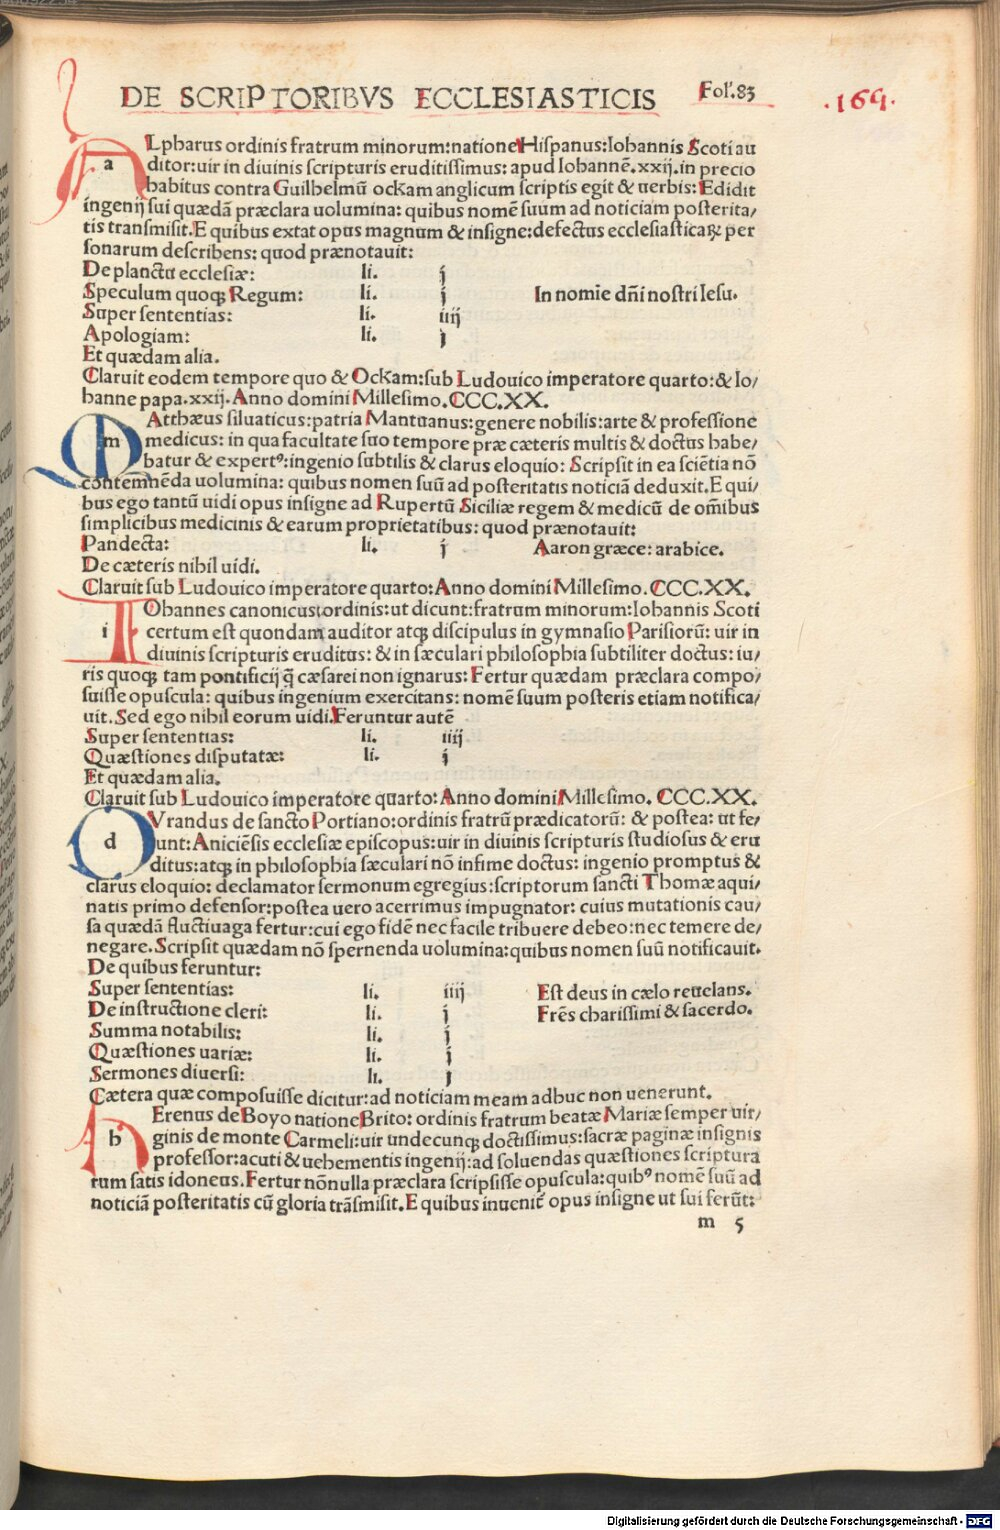 DE SCRIPTORIBVS ECCLESIASTICIS Fol'.83
.169.
ALpharus ordinis fratrum minorum:natione Hispanus:Iohannis Scoti au
ditor:uir in diuinis scripturis eruditissimus: apud Iohannē.xxij.in precio
habitus contra Guilhelmū ockam anglicum scriptis egit & uerbis: Edidit
ingenij sui quædā præclara uolumina: quibus nomē suum ad noticiam posterita/
tis transmisit.E quibus extat opus magnum & insigne:defectus ecclesiasticaꝝ per
sonarum describens: quod prænotauit:
De planctu ecclesiæ: li. j
Speculum quoqꝫ Regum: li. j In nomie dñi nostri Iesu.
Super sententias: li. iiij
Apologiam: li. j
Et quædam alia.
Claruit eodem tempore quo & Ockam:sub Ludouico imperatore quarto:& Io/
hanne papa.xxij.Anno domini Millesimo.CCC.XX.
MAtthæus siluaticus:patria Mantuanus:genere nobilis:arte & professione
medicus: in qua facultate suo tempore præ cæteris multis & doctus habe/
batur & expertꝰ:ingenio subtilis & clarus eloquio: Scripsit in ea sciētia nō
contemnēda uolumina: quibus nomen suū ad posteritatis noticiā deduxit.E qui/
bus ego tantū uidi opus insigne ad Rupertū Siciliæ regem & medicū de om̄ibus
simplicibus medicinis & earum proprietatibus: quod prænotauit:
Pandecta: li. j Aaron græce: arabice.
De cæteris nihil uidi.
Claruit sub Ludouico imperatore quarto: Anno domini Millesimo.CCC.XX.
IOhannes canonicus:ordinis:ut dicunt:fratrum minorum:Iohannis Scoti
certum est quondam auditor atqꝫ discipulus in gymnasio Parisiorū: uir in
diuinis scripturis eruditus: & in sæculari philosophia subtiliter doctus: iu/
ris quoqꝫ tam pontificij q̄ cæsarei non ignarus: Fertur quædam præclara compo/
suisse opuscula: quibus ingenium exercitans: nomē suum posteris etiam notifica/
uit. Sed ego nihil eorum uidi.Feruntur autē
Super sententias: li. iiij
Quæstiones disputatæ: li. j
Et quædam alia.
Claruit sub Ludouico imperatore quarto: Anno domini Millesimo. CCC.XX.
DVrandus de sancto Portiano:ordinis fratrū prædicatorū: & postea: ut fe/
unt:Aniciēsis ecclesiæ episcopus:uir in diuinis scripturis studiosus & eru
ditus:atqꝫ in philosophia sæculari nō infime doctus: ingenio promptus &
clarus eloquio: declamator sermonum egregius:scriptorum sancti Thomæ aqui/
natis primo defensor:postea uero acerrimus impugnator: cuius mutationis cau/
sa quædā fluctiuaga fertur:cui ego fidē nec facile tribuere debeo:nec temere de/
negare.Scripsit quædam nō spernenda uolumina:quibus nomen suū notificauit.
De quibus feruntur:
Super sententias: li. iiij Est deus in cælo reuelans.
De instructione cleri: li. j Frēs charissimi & sacerdo.
Summa notabilis: li. j
Quæstiones uariæ: li. j
Sermones diuersi: li. j
Cætera quæ composuisse dicitur:ad noticiam meam adhuc non uenerunt.
HErenus de Boyo natione Brito: ordinis fratrum beatæ Mariæ semper uir/
ginis de monte Carmeli:uir undecunqꝫ doctissimus:sacræ paginæ insignis
professor:acuti & uehementis ingenij:ad soluendas quæstiones scriptura
rum satis idoneus.Fertur nōnulla præclara scripsisse opuscula:quibꝰ nomē suū ad
noticiā posteritatis cū gloria trāsmisit.E quibus inueniť opus insigne ut sui ferūt:
m 5
Digitalisierung gefördert durch die Deutsche Forschungsgemeinschaft - DFG